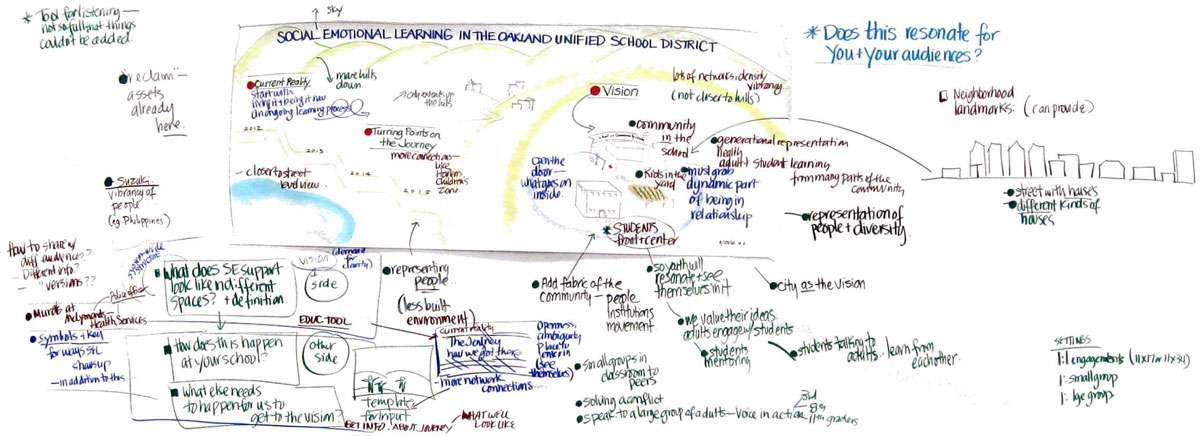 * Tool for listening—
not so full that things
couldn't be added.
SKY
SOCIAL EMOTIONAL LEARNING IN THE OAKLAND UNIFIED SCHOOL DISTRICT
* Does this resonate for
You + Your audiences?
"reclaim"
assets
already
here.
Current Reality
start with
living it + being it now
an ongoing learning process
more hills
down
Turning Points on
the Journey
more connection—
like
Harlem
Children's
Zone
2012
2013
2014
2015
— closer to street
level view
Vision
lots of networks, density
vibrancy
(not closer to hills)
community
in the
school
generational representation
health
adult + student learning
from many parts of the
community
open the
door—
what goes on
inside
Kids in the
yard
must grab
dynamic part
of being in
relationship
* STUDENTS
front + center
representation of
people + diversity
Neighborhood
landmarks: (can provide)
street with houses
different kinds of
houses
Suzuki
vibrancy of
people
(eg. Philippines)
How to share w/
diff audiences?
— Different info?
— "versions"??
What does SE support
look like in different
spaces? + definition
VISION
(demand for
clarity)
one
side
EDUC TOOL
representing
people
(less built
environment)
Murals at
Health Services
symbols + key
for ways SEL
shows up
— in addition to this
How does this happen
at your school?
other
side
What else needs
to happen for us to
get to the vision?
template
for input
GET INFO. ABOUT JOURNEY
WHAT WE'LL
LOOK LIKE
current reality
The Journey
how we got there
— more network
connections —
Openness,
ambiguity,
place to
enter in
(see
themselves)
Add fabric of the
community — people
institutions
movement
so youth will
resonate + see
themselves in it
City as the Vision
we value their ideas.
adults engage w/ students
students
mentoring
students talking to
adults. learn from
each other
small groups in
classroom to
peers
solving a conflict
speak to a large group of adults — voice in action
3rd
8th
11th graders
SETTINGS
1:1 engagements (11x17 or 11x34)
1: small group
1: lge group